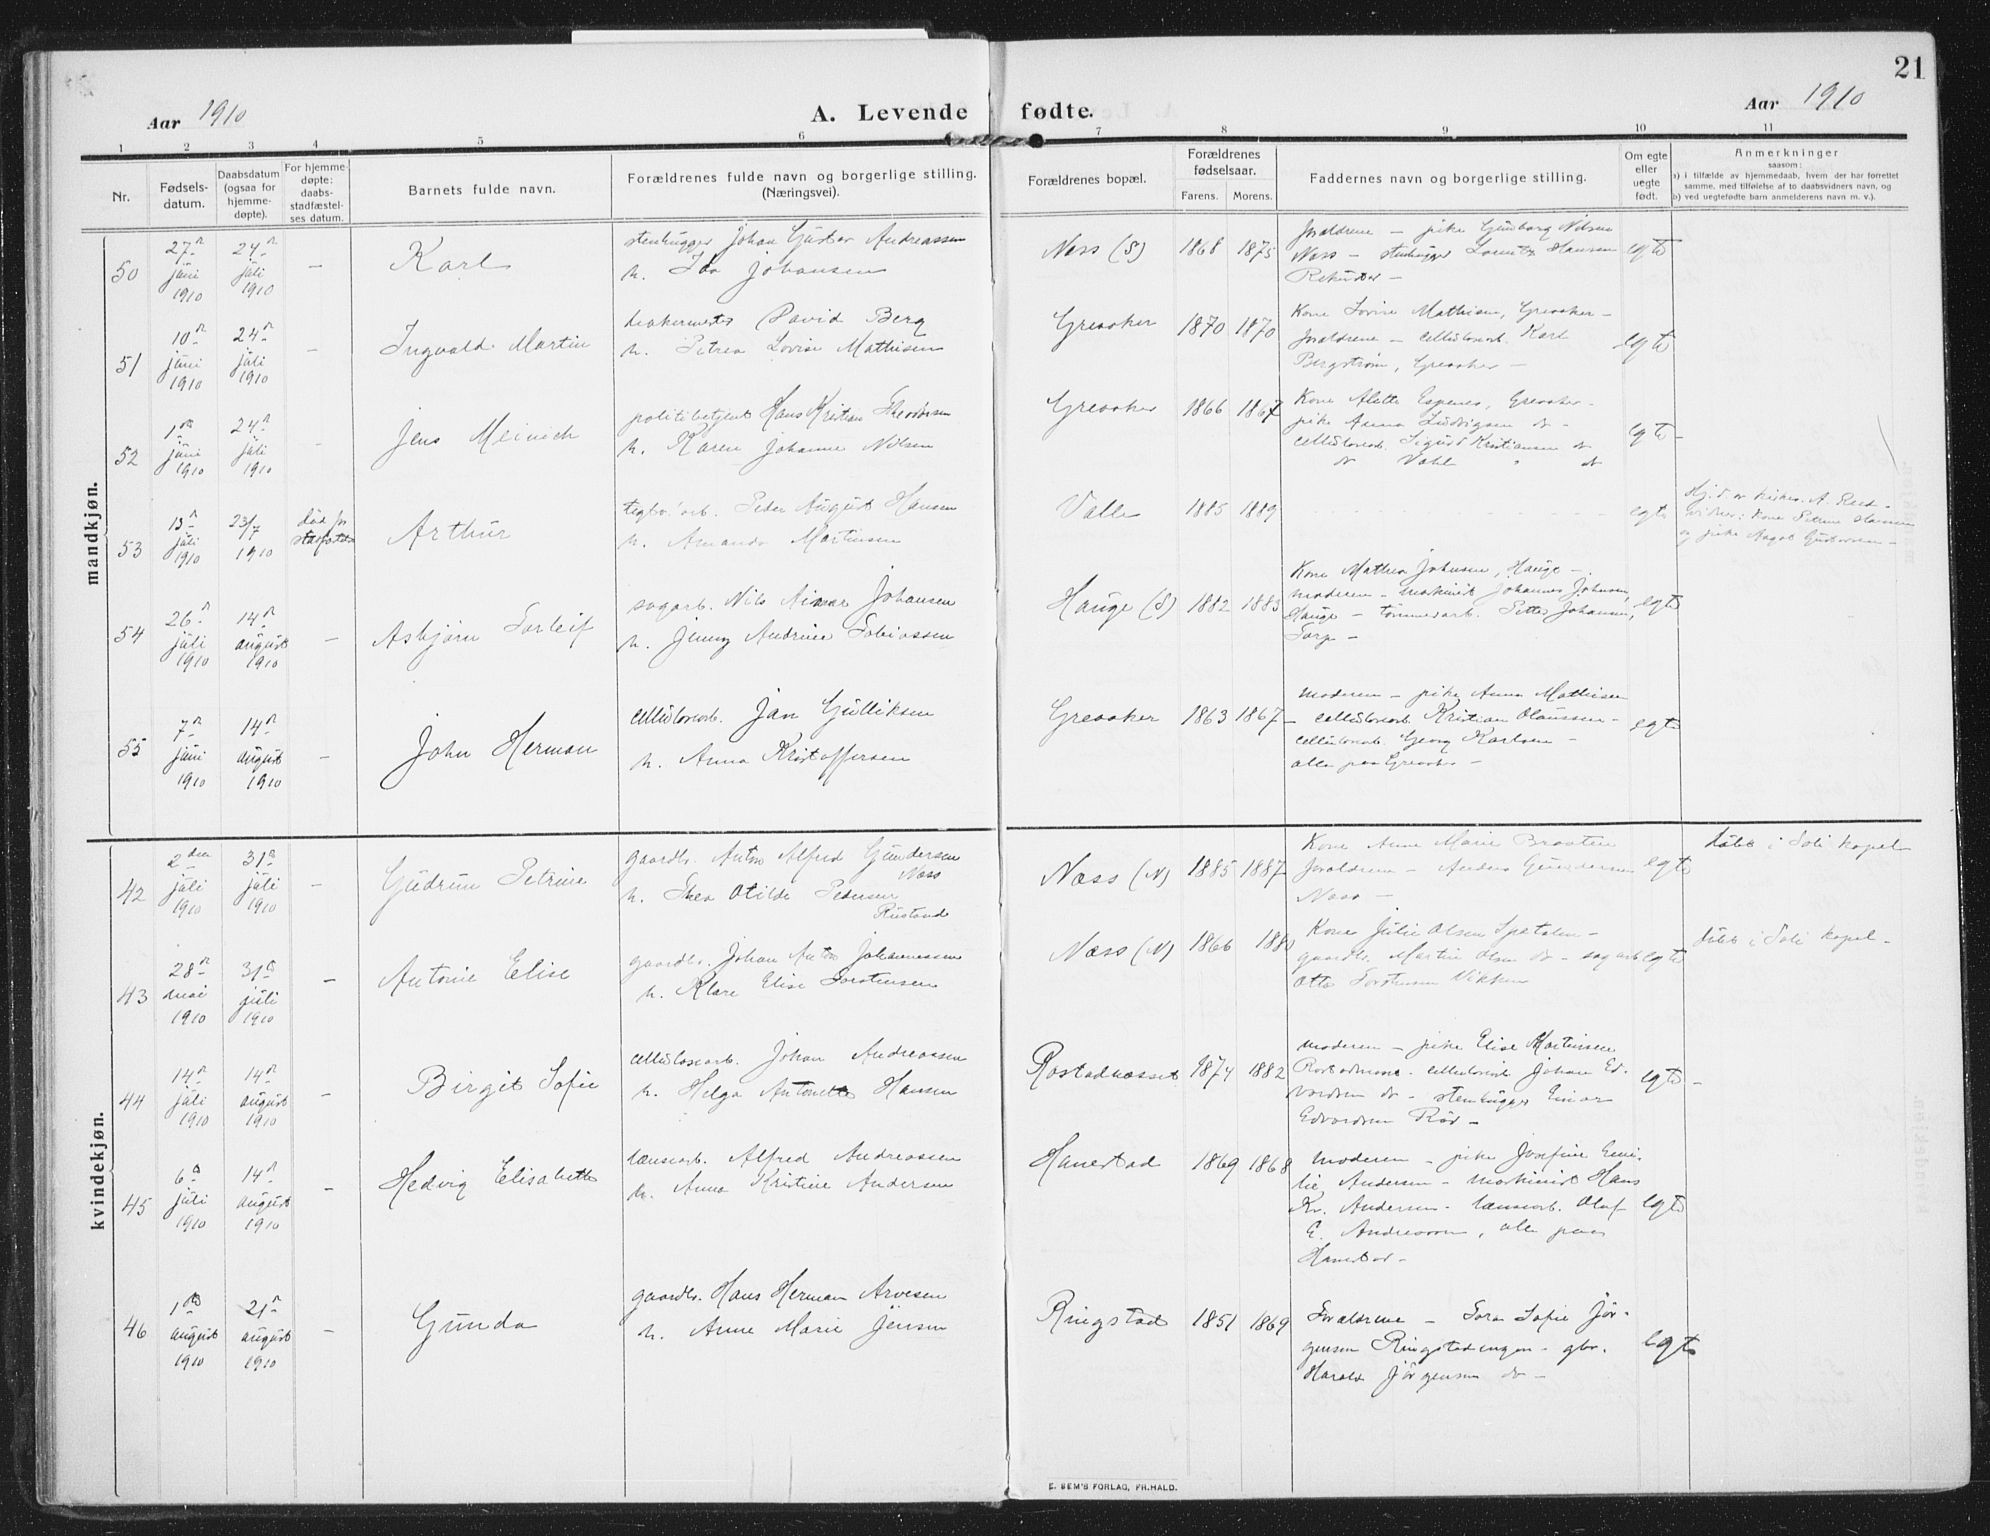 21
Aar 1910
A. Levende fødte.
Aar 1910
1 2 3 4 5 6 7 8 9 10 11
Nr.
Fødsels-
datum.
Daabsdatum
(ogsaa for
hjemme-
døpte).
For hjemme-
døpte:
daabs-
stadfæstel-
ses datum.
Barnets fulde navn.
Forældrenes fulde navn og borgerlige stilling.
(Næringsvei).
Forældrenes bopæl.
Forældrenes
fødselsaar.
Farens. Morens.
Faddernes navn og borgerlige stilling.
Om egte
eller
uegte
født.
Anmerkninger
saasom:
a) i tilfælde av hjemmedaab, hvem der har forrettet
samme, med tilføielse af to daabsvidners navn, og
b) ved uegtefødte barn anmelderens navn m. v.).
mandkjøn.
50
27de juni 1910
24de juli 1910
—
Karl
stenhugger Johan Gustav Andreassen
h. Ida Johansen
Næss (S)
1868 1875
Forældrene — pike Gunborg Nilsen
Næss — stenhugger Hansen
egte
51
10de juni 1910
24de juli 1910
—
Ingvald Martin
David Berg
h. Petrea Lovise Mathisen
Greaaker
1870 1870
Kone Lovise Mathisen, Greaaker —
forældrene — cellulosearb. Karl
Bergstrøm, Greaaker —
egte
52
1ste juni 1910
24de juli 1910
—
Jens Meinich
politibetjent Hans Kristian Theodorsen
h. Karen Johanne Nilsen
Greaaker
1866 1867
Kone Alette Espenes, Greaaker —
pike Anna Ludvigsen do —
cellulosearb. Sigurd Kristiansen do
do Vahl " do
egte —
53
13de juli 1910
23/7 1910
død før
stadfæstelse
Arthur
teglv.arb. Peder August Hansen
h. Amanda Martinsen
Valle
1885 1889
egte
Hj.d. av A.
vidner: Kone Petrine Hansen
og pike Aagot Gustavsen —
54
26de juli 1910
14de august 1910
—
Asbjørn Torleif
sagarb. Nils Ainar Johansen
h. Jenny Andrine Tobiassen
Hauge (S)
1882 1883
Kone Mathea Johnsen, Hauge —
moderen — maskinist Johannes Johnsen,
Hauge — tømmerarb. Petter Johansen,
Torp —
egte
55
7de juni 1910
14de august 1910
—
John Herman
cellulosearb. Jan Gulliksen
h. Anna Kristoffersen
Greaaker
1863 1867
moderen — pike Anna Mathisen
— cellulosearb. Kristian Olaussen —
cellulosearb. Georg Karlsen —
alle paa Greaaker —
egte
kvindekjøn.
42
2den juli 1910
31te juli 1910
—
Gudrun Petrine
gaardbr. Anton Alfred Gundersen
Næss
h. Thea Otilde Pedersen
Rustand
Næss (N)
1885 1887
Kone Anne Marie Braaten
forældrene — Anders Gundersen
Næss —
egte
døbt i Soli kapel
43
28de mai 1910
31te juli 1910
—
Antonie Elise
gaardbr. Johan Anton Johannessen
h. Klara Elise Torstensen
Næss (N)
1866 1880
Kone Julie Olsen Spetalen —
gaardbr. Martin Olsen do — sagarb.
Otto Torstensen Vikken
egte
døbt i Soli kapel —
44
14de juli 1910
14de august 1910
—
Birgit Sofie
cellulosearb. Johan Andreassen
h. Helga Antonette Hansen
Rostadnæsset
1874 1882
moderen — pike Elise Martinsen
Rostadnæsset — cellulosearb. Johan Ed-
vardsen do — stenhugger Einar
Edvardsen Rød —
egte —
45
6te juli 1910
14de august 1910
—
Hedvig Elisabeth
lænsearb. Alfred Andreassen
h. Anna Kristine Andersen
Hanestad
1869 1868
moderen — pike Josefine Emi-
lie Andersen — maskinist Hans
Kr. Andersen — lænsearb. Olaf
E. Andreassen, alle paa
Hanestad —
egte
46
1ste august 1910
21de august 1910
—
Gunda
gaardbr. Hans Herman Arvesen
h. Anne Marie Jensen
Ringstad
1851 1869
Forældrene — Tora Sofie Jør-
gensen Ringstadengen — gbr.
Harald Jørgensen do —
egte
E. SEM'S FORLAG, FR.HALD.